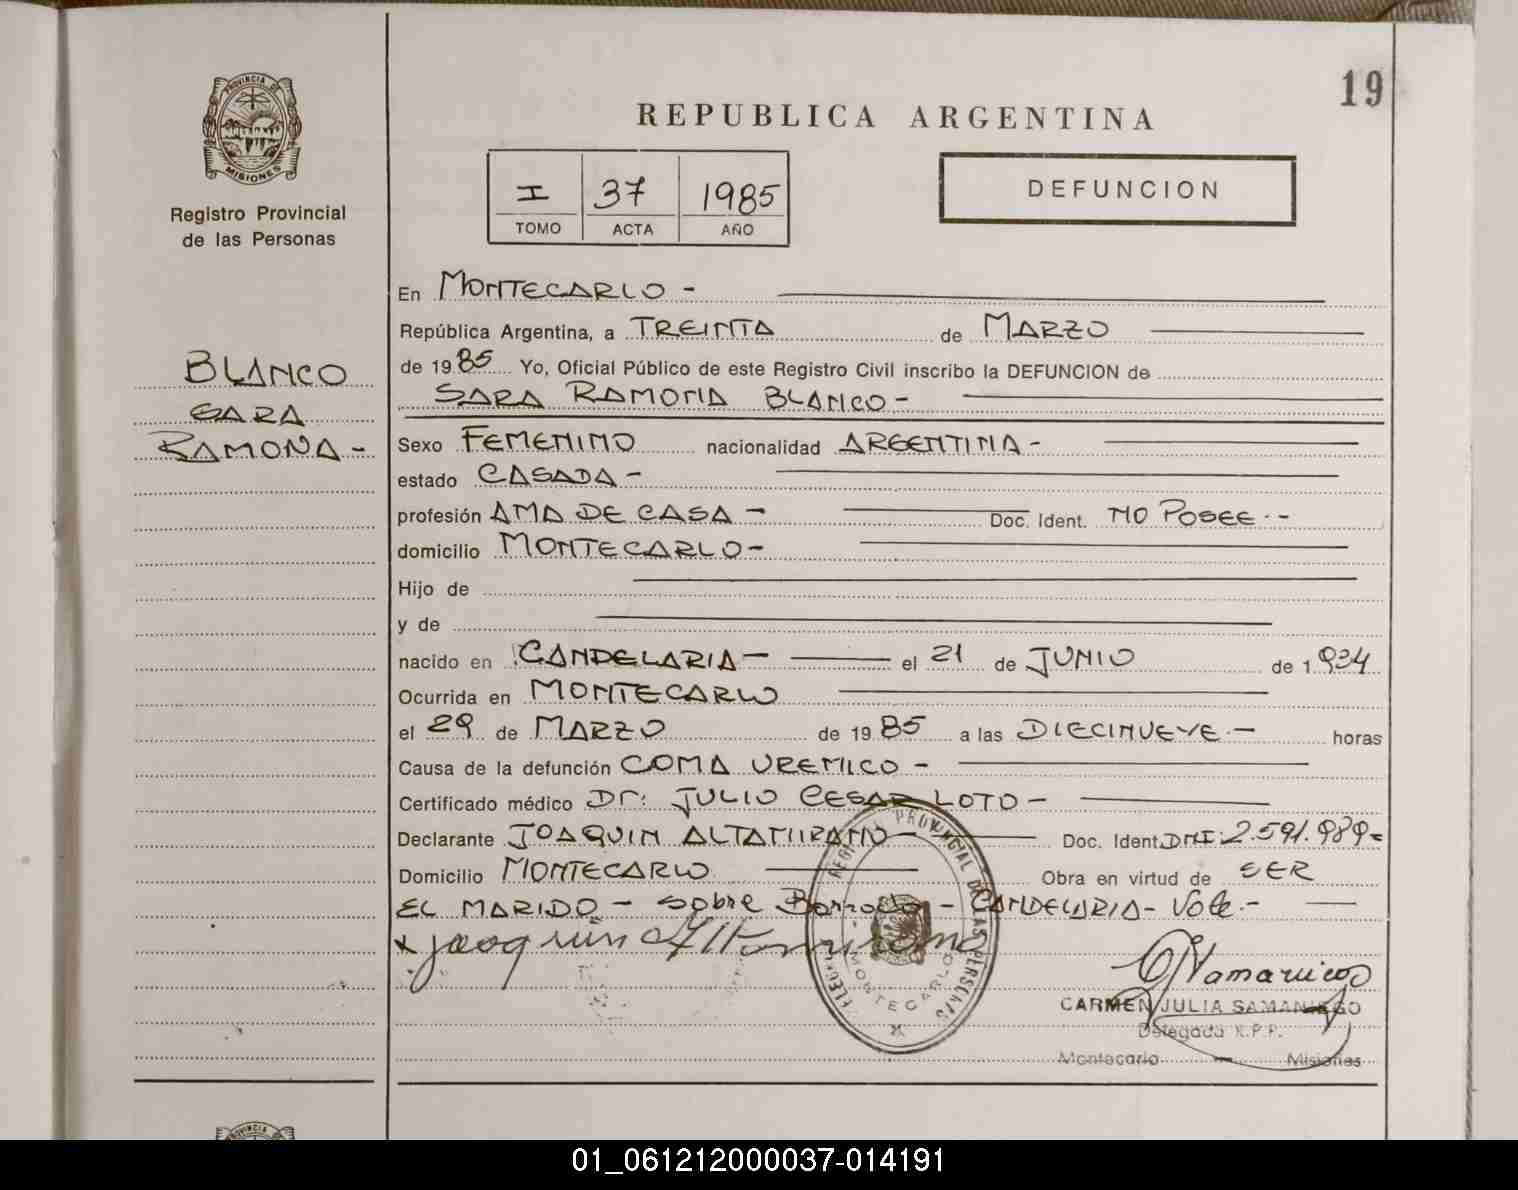 19
REPUBLICA ARGENTINA
PROVINCIA DE
MISIONES
Registro Provincial
de las Personas
I 37 1985
TOMO ACTA AÑO
DEFUNCION
BLANCO
SARA
RAMONA -
En MONTECARLO -
República Argentina, a TREINTA de MARZO
de 1985 Yo, Oficial Público de este Registro Civil inscribo la DEFUNCION de
SARA RAMONA BLANCO -
Sexo FEMENINO nacionalidad ARGENTINA -
estado CASADA -
profesión AMA DE CASA - Doc. Ident. NO POSEE.-
domicilio MONTECARLO -
Hijo de
y de
nacido en CANDELARIA - el 21 de JUNIO de 1.934
Ocurrida en MONTECARLO
el 29 de MARZO de 1985 a las DIECINUEVE.- horas
Causa de la defunción COMA UREMICO -
Certificado médico Dr: JULIO CESAR LOTO -
Declarante JOAQUIN ALTAMIRANO - Doc. Ident. DNI: 2.591.989=
Domicilio MONTECARLO Obra en virtud de SER
EL MARIDO - sobre Borrado - CANDELARIA - Vale.-
x Joaquin Altamirano
REGISTRO PROVINCIAL DE LAS PERSONAS
MONTECARLO
CARMEN JULIA SAMANIEGO
Delegada R.P.P.
Montecarlo - Misiones
PROVINCIA DE
01_061212000037-014191